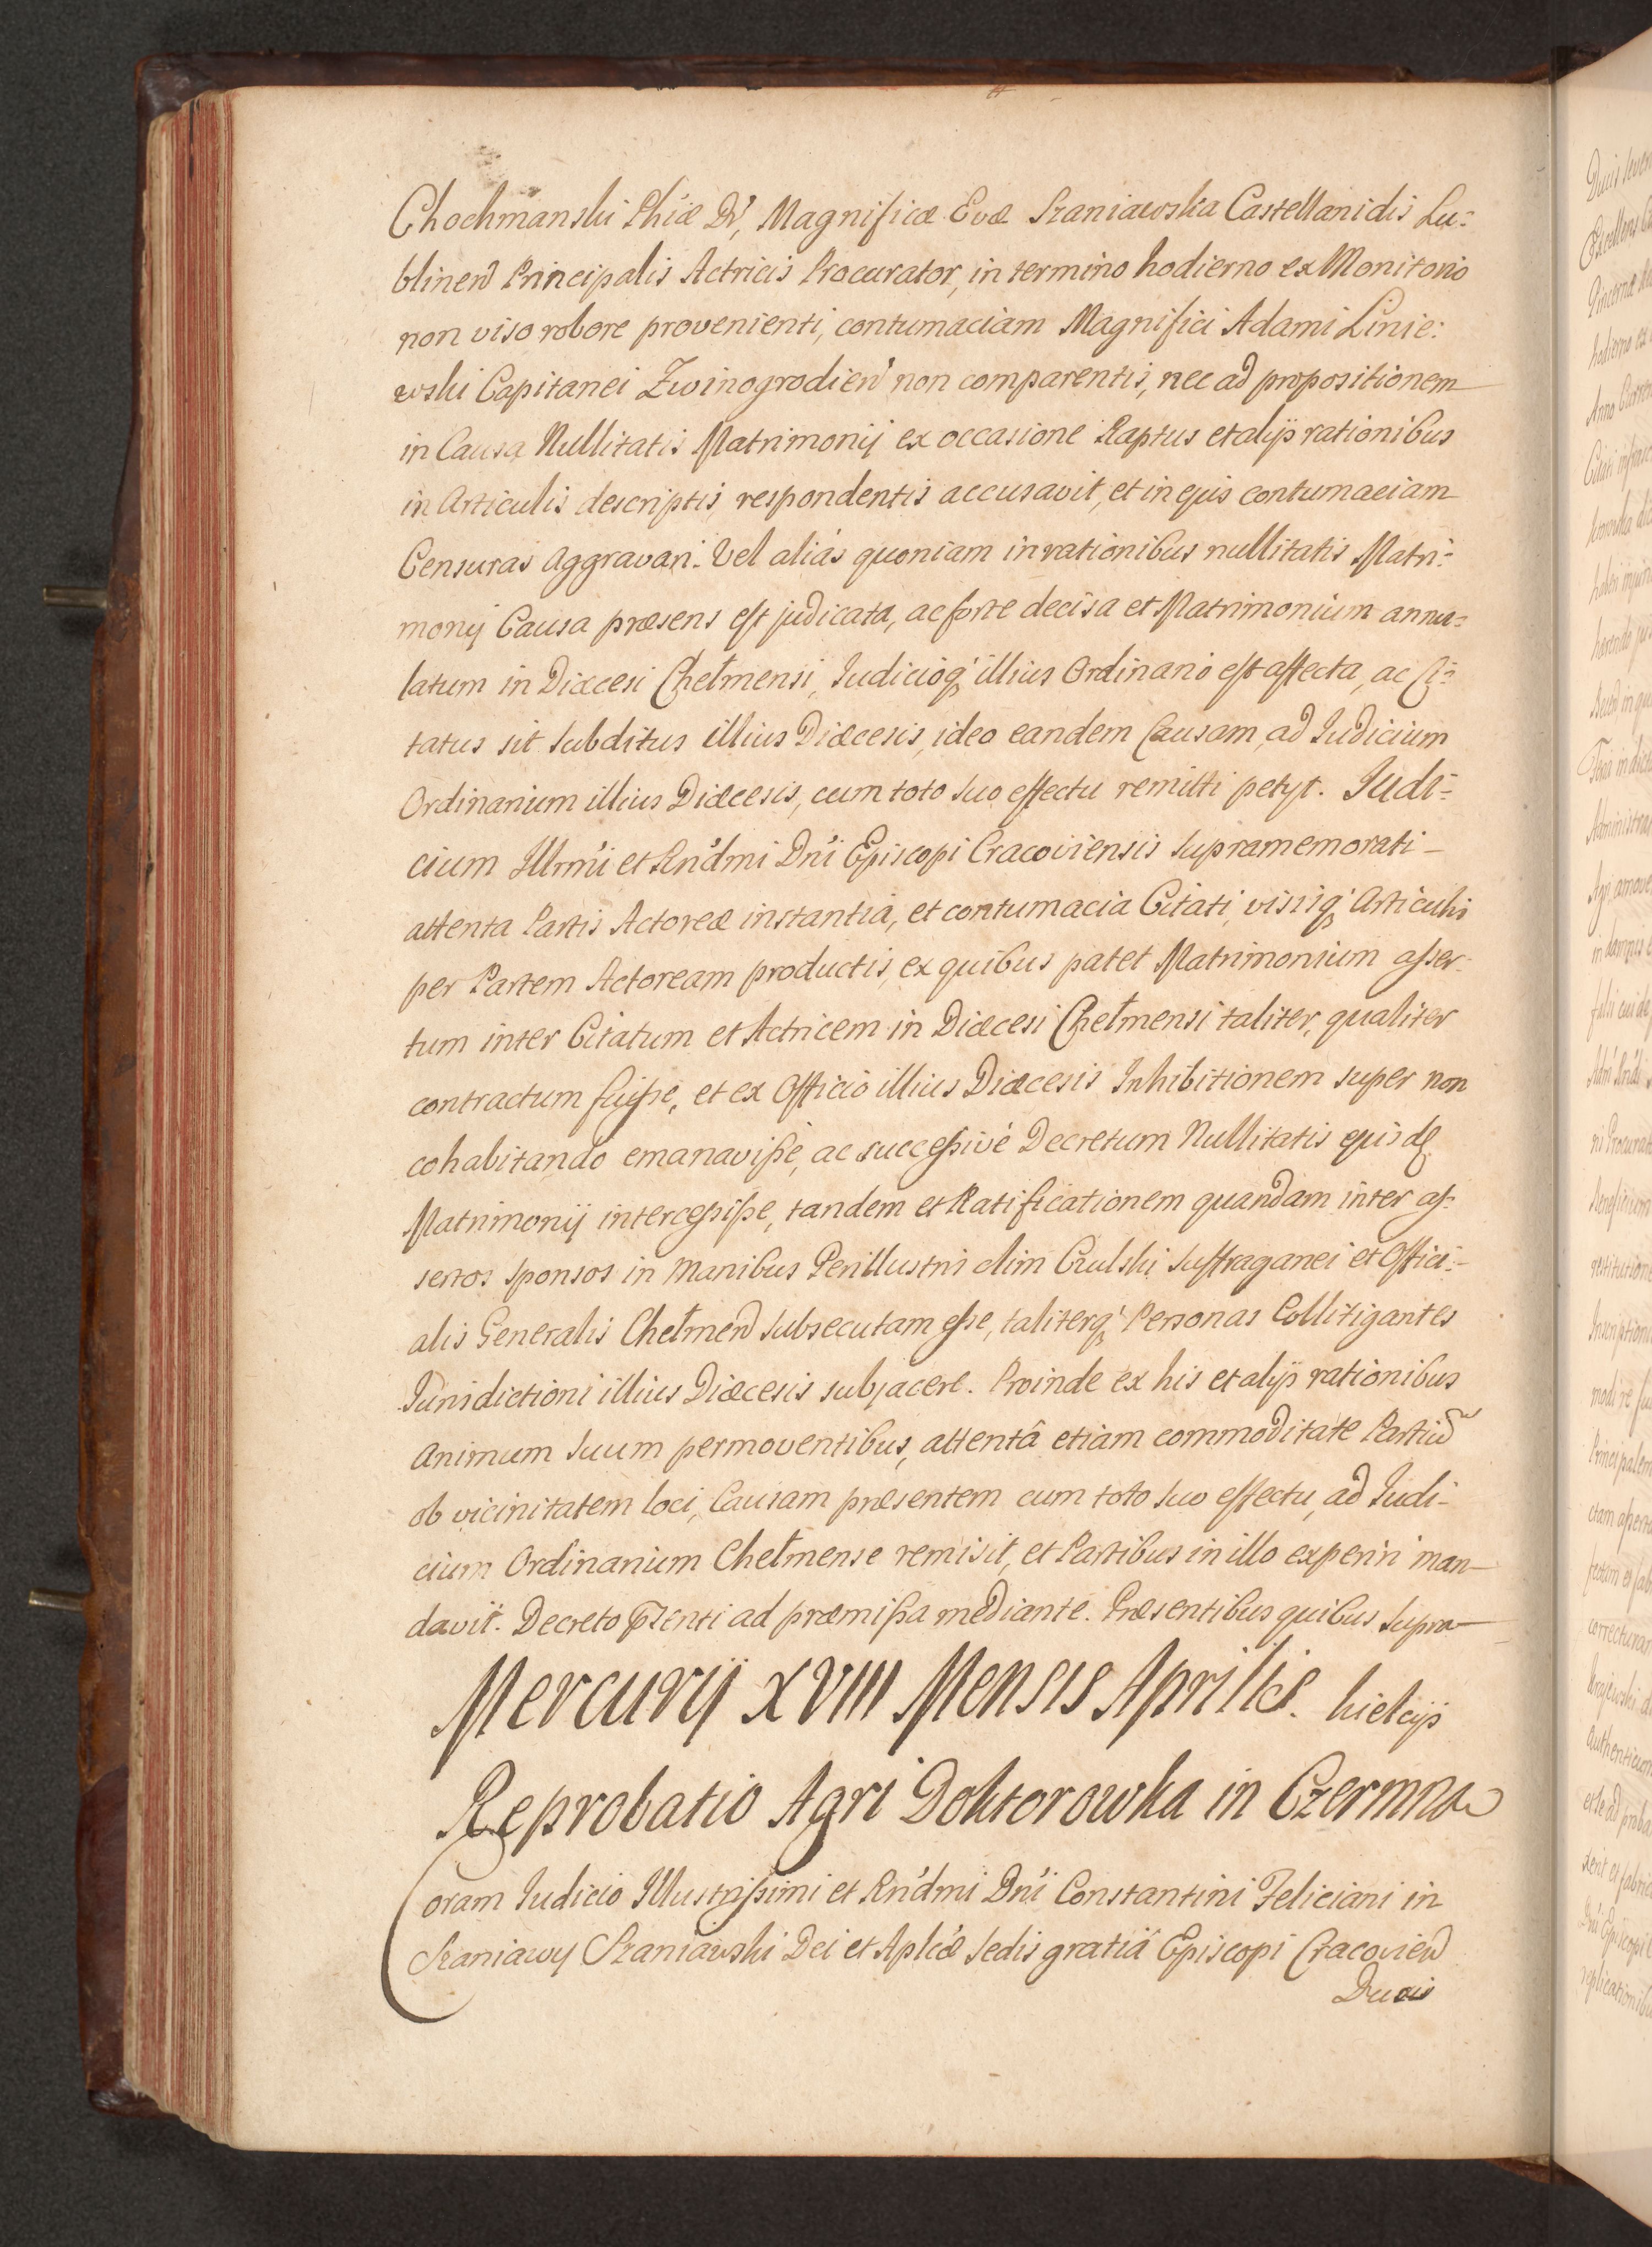 Chochmanski Phiæ Dr, Magnificæ Evæ Szaniawska Castellanidis Lu:
blinen Principalis Actricis Procurator, in termino hodierno ex Monitorio
non viso robore provenienti, contumaciam Magnifici Adami Linie:
wski Capitanei Zwinogrodien non comparentis, nec ad propositionem
in Causa Nullitatis Matrimonij ex occasione Raptus et alijs rationibus
in Articulis descriptis, respondentis accusavit, et in ejus contumaciam
Censuras Aggravari. Vel aliàs quoniam in rationibus nullitatis Matri:
monij Causa præsens est judicata, ac forte decisa et Matrimonium annu:
latum in Diæcesi Chełmensi, Iudicioq illius Ordinario est affecta, ac Ci:
tatus sit Subditus illius Diæcesis, ideo eandem Causam, ad Iudicium
Ordinarium illius Diæcesis, cum toto suo effectu remitti petyt. Iudi:
cium Illrmi et Rndmi Dni Episcopi Cracoviensis supramemorati
attenta Partis Actoreæ instantia, et contumacia Citati, visisq Articulis
per Partem Actoream productis, ex quibus patet Matrimonium asser:
tum inter Citatum et Actricem in Diæcesi Chełmensi taliter, qualiter
contractum fuisse, et ex Officio illius Diæcesis Inhibitionem super non
cohabitando emanavisse, ac successivè Decretum Nullitatis ejusd
Matrimonij intercessisse, tandem et Ratificationem quandam inter as:
sertos sponsos in Manibus Perillustris olim Suffraganei et Offici:
alis Generalis Chełmen subsecutam esse, taliterq Personas Collitigantes
Iurisdictioni illius Diæcesis subjacere. Proinde ex his et alijs rationibus
Animum suum permoventibus, attentâ etiam commoditate Partiũ
ob vicinitatem loci, Causam præsentem cum toto suo effectu, ad Iudi-
cium Ordinarium Chełmense remisit, et Partibus in illo experiri man-
davit. Decreto pzenti ad præmissa mediante. Præsentibus quibus supra
Mercurij XVIII Mensis Aprilis. kielcijs
Reprobatio Agri Doktorowka in Czermna
Coram Iudicio Illustrissimi et Rndmi Dni Constantini Feliciani in
Szaniawy Szaniawski Dei et Aplicæ Sedis gratiâ Episcopi Cracovien
Ducis